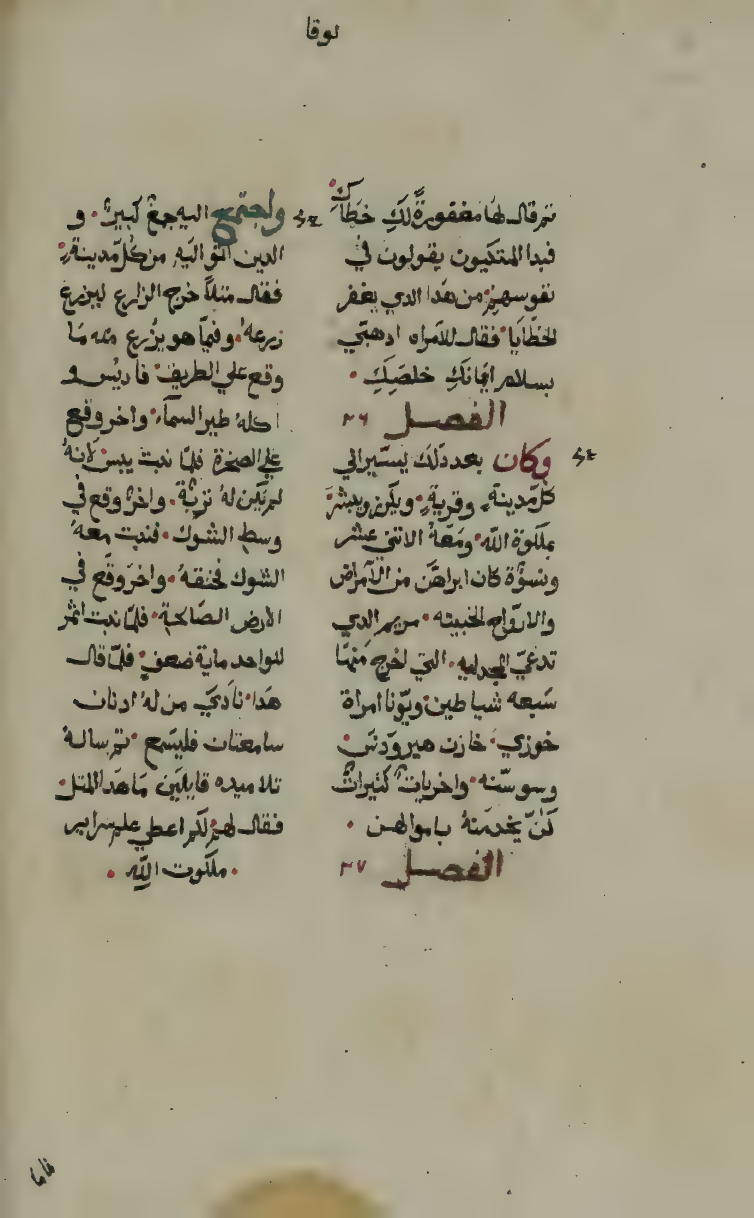 لوقا
ثم قال لها مغفورة لك خطاك
فبدا المتكيون يقولون في
نفوسهم من هدا الدي يغفر
الخطايا فقال للامراه ادهبي
بسلام ايمانك خلصك
الفصل ٢٦
وكان بعد دلك يسير الي
كل مدينة وقرية ويكرز ويبشر
بملكوة الله ومعه الاتني عشر
ونسوة كان ابراهن من الامراض
والارواح الخبيثه مريم الدي
تدعي المجدليه التي اخرج منها
سبعه شياطين ويونا امراة
خوزي خازن هيرودس
وسوسنه واخريات كثيرات
كن يخدمنه باموالهن
الفصل ٢٧
ولجتمع اليه جمع كبير و
الدين اتوا اليه من كل مدينة
فقال مثلا خرج الزارع ليزرع
زرعه وفيما هو يزرع منه ما
وقع علي الطريق فاديس و
اكله طير السماء واخر وقع
علي الصخرة فلما نبت يبس لانه
لم تكن له تربة واخر وقع في
وسط الشوك فنبت معه
الشوك فخنقه واخر وقع في
الارض الصالحة فلما نبت اثمر
للواحد ماية ضعف فلما قال
هدا نادي من له ادنان
سامعتان فليسمع ثم ساله
تلاميده قايلين ما هدا المثل
فقال لهم لكم اعطي علم سراير
ملكوت الله